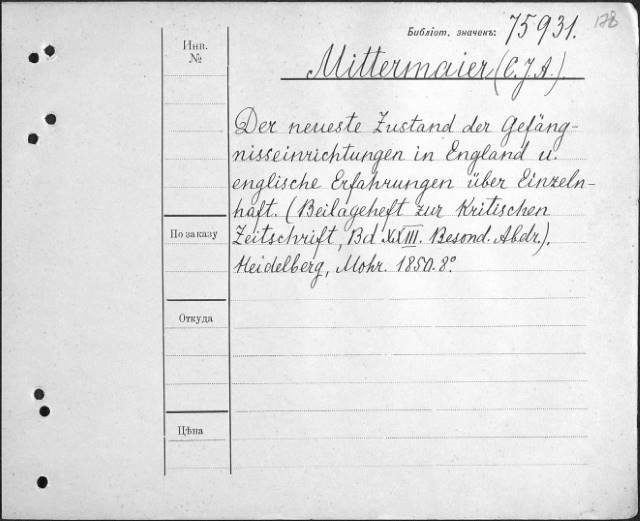 Библіот. значекъ: 75931. 178
Инв.
№
Mittermaier (C. J. A.)
Der neueste Zustand der Gefäng-
nisseinrichtungen in England u.
englische Erfahrungen über Einzeln-
haft. (Beilageheft zur Kritischen
По заказу
Zeitschrift, Bd XXIII. Besond. Abdr.).
Heidelberg, Mohr. 1850. 8º
Откуда
Цѣна